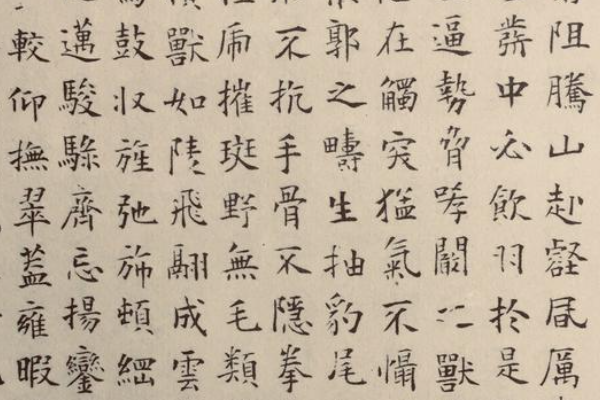 阻騰山赴壑厲
發中必飲羽於是
逼勢脅哮闞二獸
在觸突猛氣不慴
郭之疇生抽豹尾
不抗手骨不隱拳
虎摧斑野無毛類
獸如陵飛翮成雲
鼓収旌弛斾頓
邁駿騄齊揚鑾
較仰撫翠蓋雍暇